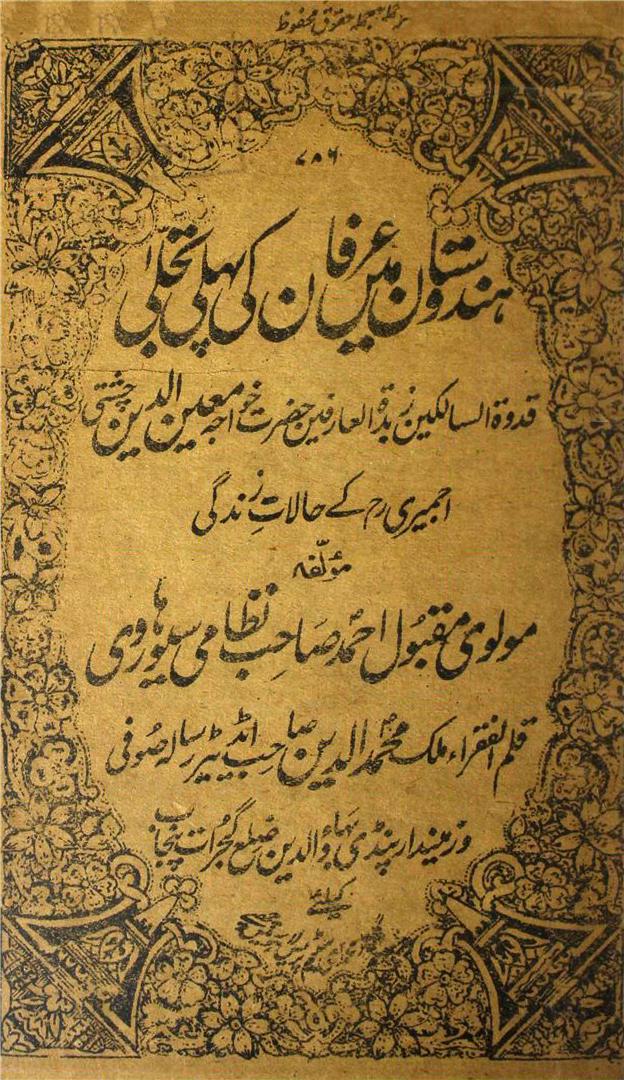 حقوق محفوظ
۷۸۶
ہندوستان میں عرفان کی پہلی تجلی
قدوۃ السالکین زبدۃ العارفین حضرت خواجہ معین الدین چشتی
اجمیری رح کے حالاتِ زندگی
مؤلفہ
مولوی مقبول احمد صاحب نظامی سیوہاروی
قلم الفقراء ملک محمد الدین صاحب ایڈیٹر رسالہ صوفی
و زمیندار پنڈی بہاؤالدین ضلع گجرات پنجاب
کیلئے